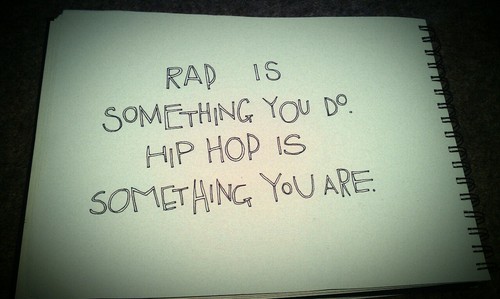 RAP IS
SOMETHING YOU DO.
HIP HOP IS
SOMETHING YOU ARE.